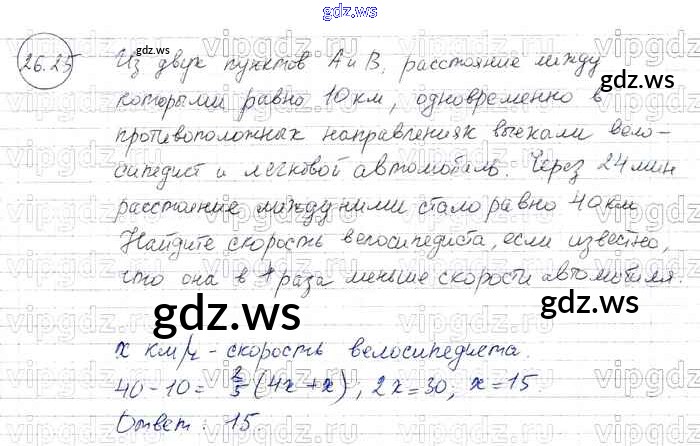 gdz.ws
26.25
Из двух пунктов А и В, расстояние между
которыми равно 10 км, одновременно в
противоположных направлениях выехали вело-
сипедист и легковой автомобиль. Через 24 мин
расстояние между ними стало равно 40 км
Найдите скорость велосипедиста, если известно,
что она в 4 раза меньше скорости автомобиля.
x км/ч - скорость велосипедиста.
40-10 = 2/5 (4x+x), 2x=30; x=15.
Ответ: 15.
gdz.ws
gdz.ws
gdz.ws
gdz.ws
gdz.ws
vipgdz